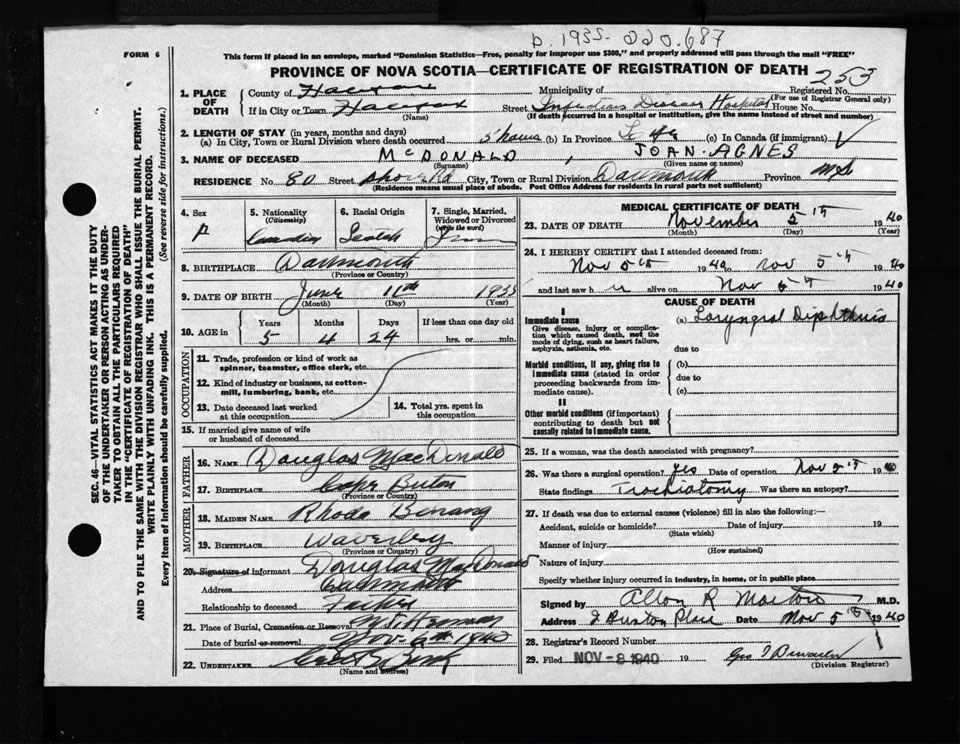 b. 1935-220.687
FORM 6
This form if placed in an envelope, marked "Dominion Statistics—Free, penalty for improper use $300," and properly addressed will pass through the mail "FREE"
PROVINCE OF NOVA SCOTIA—CERTIFICATE OF REGISTRATION OF DEATH 253
1. PLACE OF DEATH
County of Halifax Municipality of Registered No.
(For use of Registrar General only)
If in City or Town Halifax Street Infectious Diseases Hospital House No.
(Name) (If death occurred in a hospital or institution, give the name instead of street and number)
2. LENGTH OF STAY (in years, months and days)
(a) In City, Town or Rural Division where death occurred 5 hours (b) In Province Life (c) In Canada (if immigrant)
3. NAME OF DECEASED McDONALD, JOAN. AGNES
(Surname) (Given name or names)
RESIDENCE No. 80 Street Shore Rd City, Town or Rural Division Dartmouth Province N.S.
(Residence means usual place of abode. Post Office Address for residents in rural parts not sufficient)
4. Sex F
5. Nationality (Citizenship) Canadian
6. Racial Origin Scotch
7. Single, Married, Widowed or Divorced (write the word)
8. BIRTHPLACE Dartmouth
(Province or Country)
9. DATE OF BIRTH June 11th 1935
(Month) (Day) (Year)
10. AGE in Years Months Days If less than one day old
5 4 24 hrs. or min.
OCCUPATION
11. Trade, profession or kind of work as spinner, teamster, office clerk, etc.
12. Kind of industry or business, as cotton-mill, lumbering, bank, etc.
13. Date deceased last worked at this occupation
14. Total yrs. spent in this occupation
15. If married give name of wife or husband of deceased
FATHER
16. NAME Douglas MacDonald
17. BIRTHPLACE Cape Breton
(Province or Country)
MOTHER
18. MAIDEN NAME Rhoda
19. BIRTHPLACE Waverley
(Province or Country)
20. Signature of informant Douglas MacDonald
Address Dartmouth
Relationship to deceased Father
21. Place of Burial, Cremation or Removal Mt. Herman
Date of burial or removal Nov. 6th 1940
22. UNDERTAKER
(Name and address)
MEDICAL CERTIFICATE OF DEATH
23. DATE OF DEATH November 5th 1940
(Month) (Day) (Year)
24. I HEREBY CERTIFY that I attended deceased from:
Nov 5th 1940 to Nov 5th 1940
and last saw h er alive on Nov 5th 1940
CAUSE OF DEATH
I
Immediate cause
Give disease, injury or complication which caused death, not the mode of dying, such as heart failure, asphyxia, asthenia, etc.
(a) Laryngeal Diphtheria
due to
Morbid conditions, if any, giving rise to immediate cause (stated in order proceeding backwards from immediate cause).
(b)
due to
(c)
II
Other morbid conditions (if important) contributing to death but not causally related to immediate cause.
25. If a woman, was the death associated with pregnancy?
26. Was there a surgical operation? yes Date of operation Nov 5th 1940
State findings Trachiotomy Was there an autopsy?
27. If death was due to external causes (violence) fill in also the following:—
Accident, suicide or homicide? Date of injury 19
(State which)
Manner of injury
(How sustained)
Nature of injury
Specify whether injury occurred in industry, in home, or in public place
Signed by Allan R Morton M.D.
Address Place Date Nov 5th 1940
28. Registrar's Record Number
29. Filed NOV - 8 1940 19
(Division Registrar)
SEC. 46—VITAL STATISTICS ACT MAKES IT THE DUTY
OF THE UNDERTAKER OR PERSON ACTING AS UNDER-
TAKER TO OBTAIN ALL THE PARTICULARS REQUIRED
IN THE "CERTIFICATE OF REGISTRATION OF DEATH"
AND TO FILE THE SAME WITH THE DIVISION REGISTRAR WHO SHALL ISSUE THE BURIAL PERMIT.
WRITE PLAINLY WITH UNFADING INK. THIS IS A PERMANENT RECORD.
Every item of information should be carefully supplied. (See reverse side for instructions.)